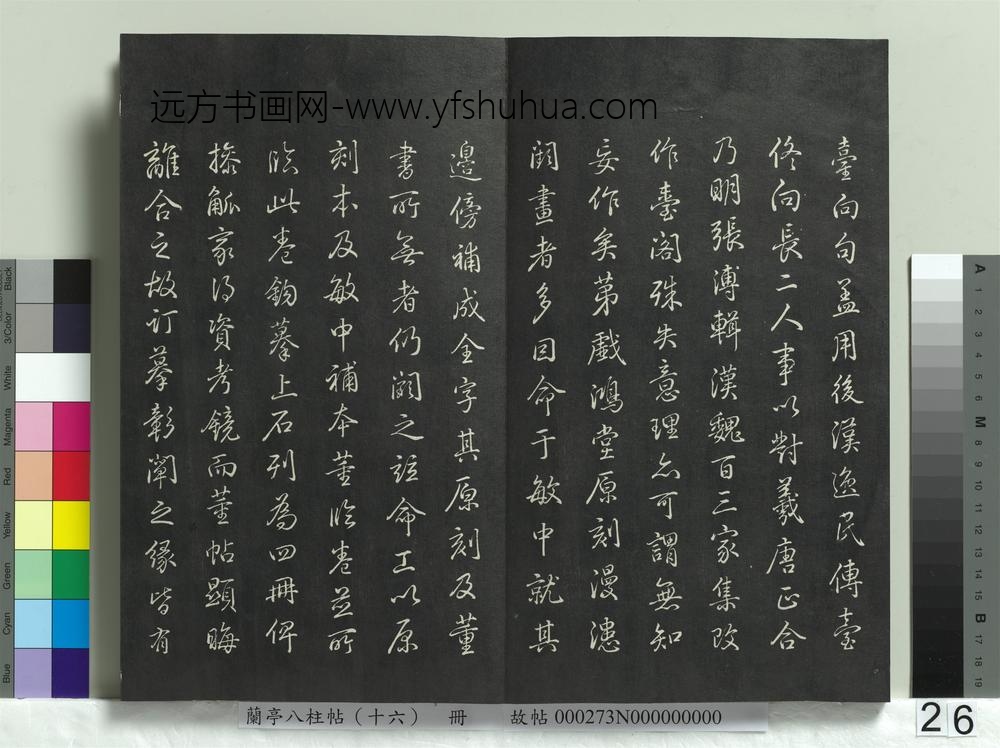 远方书画网-www.yfshuhua.com
臺向句盖用後漢逸民傳臺
佟向長二人事以對羲唐正合
乃明張溥輯漢魏百三家集改
作臺閣殊失意理亦可謂無知
妄作矣第戲鴻堂原刻漫漶
闕畫者多因命于敏中就其
邉傍補成全字其原刻及董
書所無者仍闕之並命工以原
刻本及敏中補本董臨卷並所
臨此卷鈎摹上石列為四冊俾
操觚家得資考鏡而董帖顯晦
離合之故訂摹彰闡之緣皆有
蘭亭八柱帖（十六） 冊 故帖 000273N000000000
26
Black
3/Color
White
Magenta
Red
Yellow
Green
Cyan
Blue
A
1
2
3
4
5
6
M
8
9
10
11
12
13
14
15
B
17
18
19